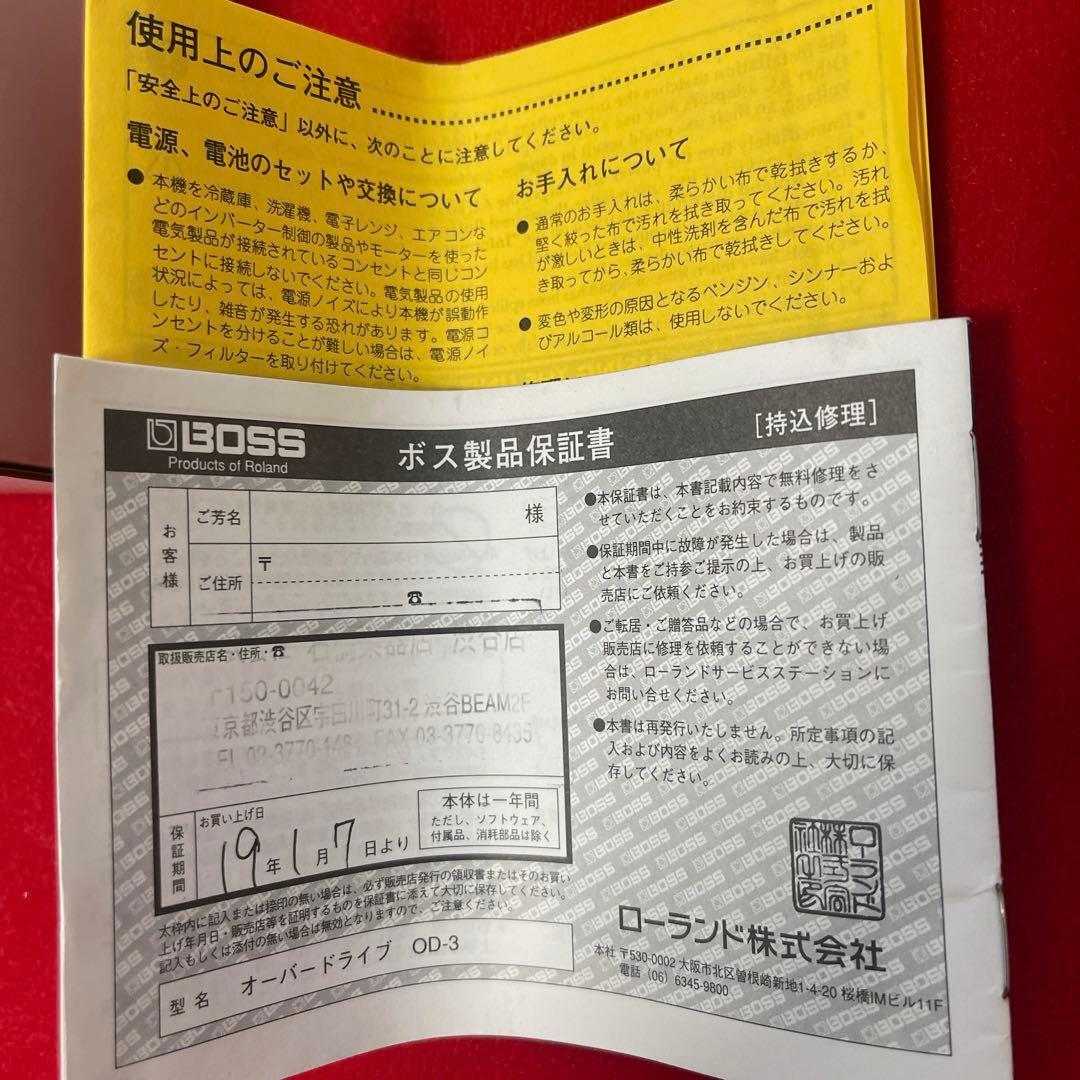 使用上のご注意
「安全上のご注意」以外に、次のことに注意してください。
電源、電池のセットや交換について
● 本機を冷蔵庫、洗濯機、電子レンジ、エアコンな
どのインバーター制御の製品やモーターを使った
電気製品が接続されているコンセントと同じコン
セントに接続しないでください。電気製品の使用
状況によっては、電源ノイズにより本機が誤動作
したり、雑音が発生する恐れがあります。電源コ
ンセントを分けることが難しい場合は、電源ノイ
ズ・フィルターを取り付けてください。
お手入れについて
● 通常のお手入れは、柔らかい布で乾拭きするか、
堅く絞った布で汚れを拭き取ってください。汚れ
が激しいときは、中性洗剤を含んだ布で汚れを拭
き取ってから、柔らかい布で乾拭きしてください。
● 変色や変形の原因となるベンジン、シンナーおよ
びアルコール類は、使用しないでください。
BOSS
Products of Roland
ボス製品保証書
[持込修理]
お客様
ご芳名
様
ご住所
〒
☎
取扱販売店名・住所・☎
渋谷店
〒150-0042
東京都渋谷区宇田川町31-2 渋谷BEAM2F
FAX 03-3770-8435
保証期間
お買い上げ日
19年1月7日より
本体は一年間
ただし、ソフトウェア、
付属品、消耗部品は除く
太枠内に記入または捺印の無い場合は、必ず販売店発行の領収書またはそのお買い
上げ年月日・販売店等を証明するものを保証書に添えて大切に保存してください。
記入もしくは添付の無い場合は無効となりますので、ご注意ください。
型名
オーバードライブ OD-3
●本保証書は、本書記載内容で無料修理をさ
せていただくことをお約束するものです。
●保証期間中に故障が発生した場合は、製品
と本書をご持参ご提示の上、お買上げの販
売店にご依頼ください。
●ご転居・ご贈答品などの場合で、お買上げ
販売店に修理を依頼することができない場
合は、ローランドサービスステーションに
お問い合せください。
●本書は再発行いたしません。所定事項の記
入および内容をよくお読みの上、大切に保
存してください。
ローランド株式会社
本社 〒530-0002 大阪市北区曽根崎新地1-4-20 桜橋IMビル11F
電話 (06) 6345-9800